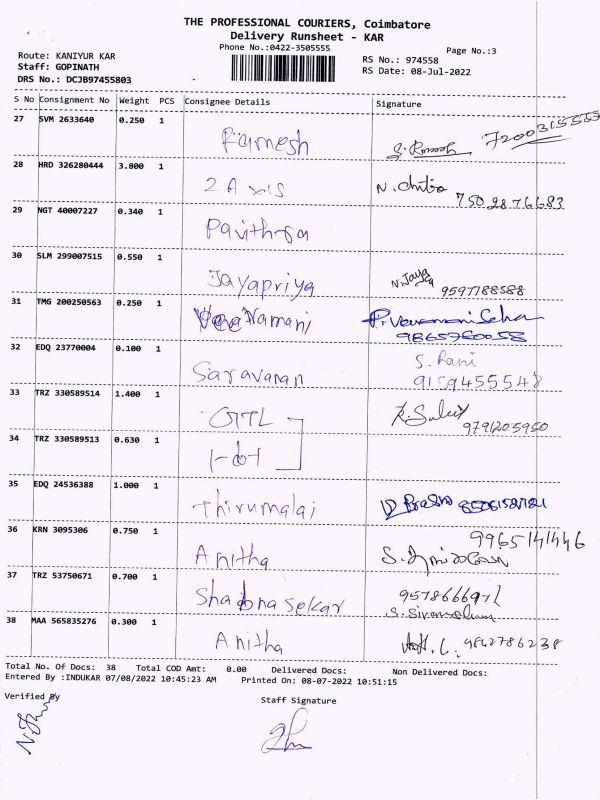 THE PROFESSIONAL COURIERS, Coimbatore
Delivery Runsheet - KAR
Phone No.:0422-3505555
Page No.:3
Route: KANIYUR KAR
Staff: GOPINATH
DRS No.: DCJB97455803
RS No.: 974558
RS Date: 08-Jul-2022
S No Consignment No Weight PCS Consignee Details Signature
27 SVM 2633640 0.250 1 Ramesh S. Ramesh 7200315555
28 HRD 326280444 3.800 1 2 Axis N. Chitra 7502876683
29 NGT 40007227 0.340 1 Pavithra
30 SLM 299007515 0.550 1 Jayapriya N. Jaya 9597788588
31 TMG 200250563 0.250 1 Veeramani 9865780058
32 EDQ 23770004 0.100 1 Saravanan S. Rani 9159455548
33 TRZ 330589514 1.400 1 GTL 9791205950
34 TRZ 330589513 0.630 1
35 EDQ 24536388 1.000 1 Thirumalai
36 KRN 3095306 0.750 1 Anitha 9965141446
37 TRZ 53750671 0.700 1 Shobna sekar
38 MAA 565835276 0.300 1 Anitha 9842786238
Total No. Of Docs: 38 Total COD Amt: 0.00 Delivered Docs: Non Delivered Docs:
Entered By :INDUKAR 07/08/2022 10:45:23 AM Printed On: 08-07-2022 10:51:15
Verified By
Staff Signature